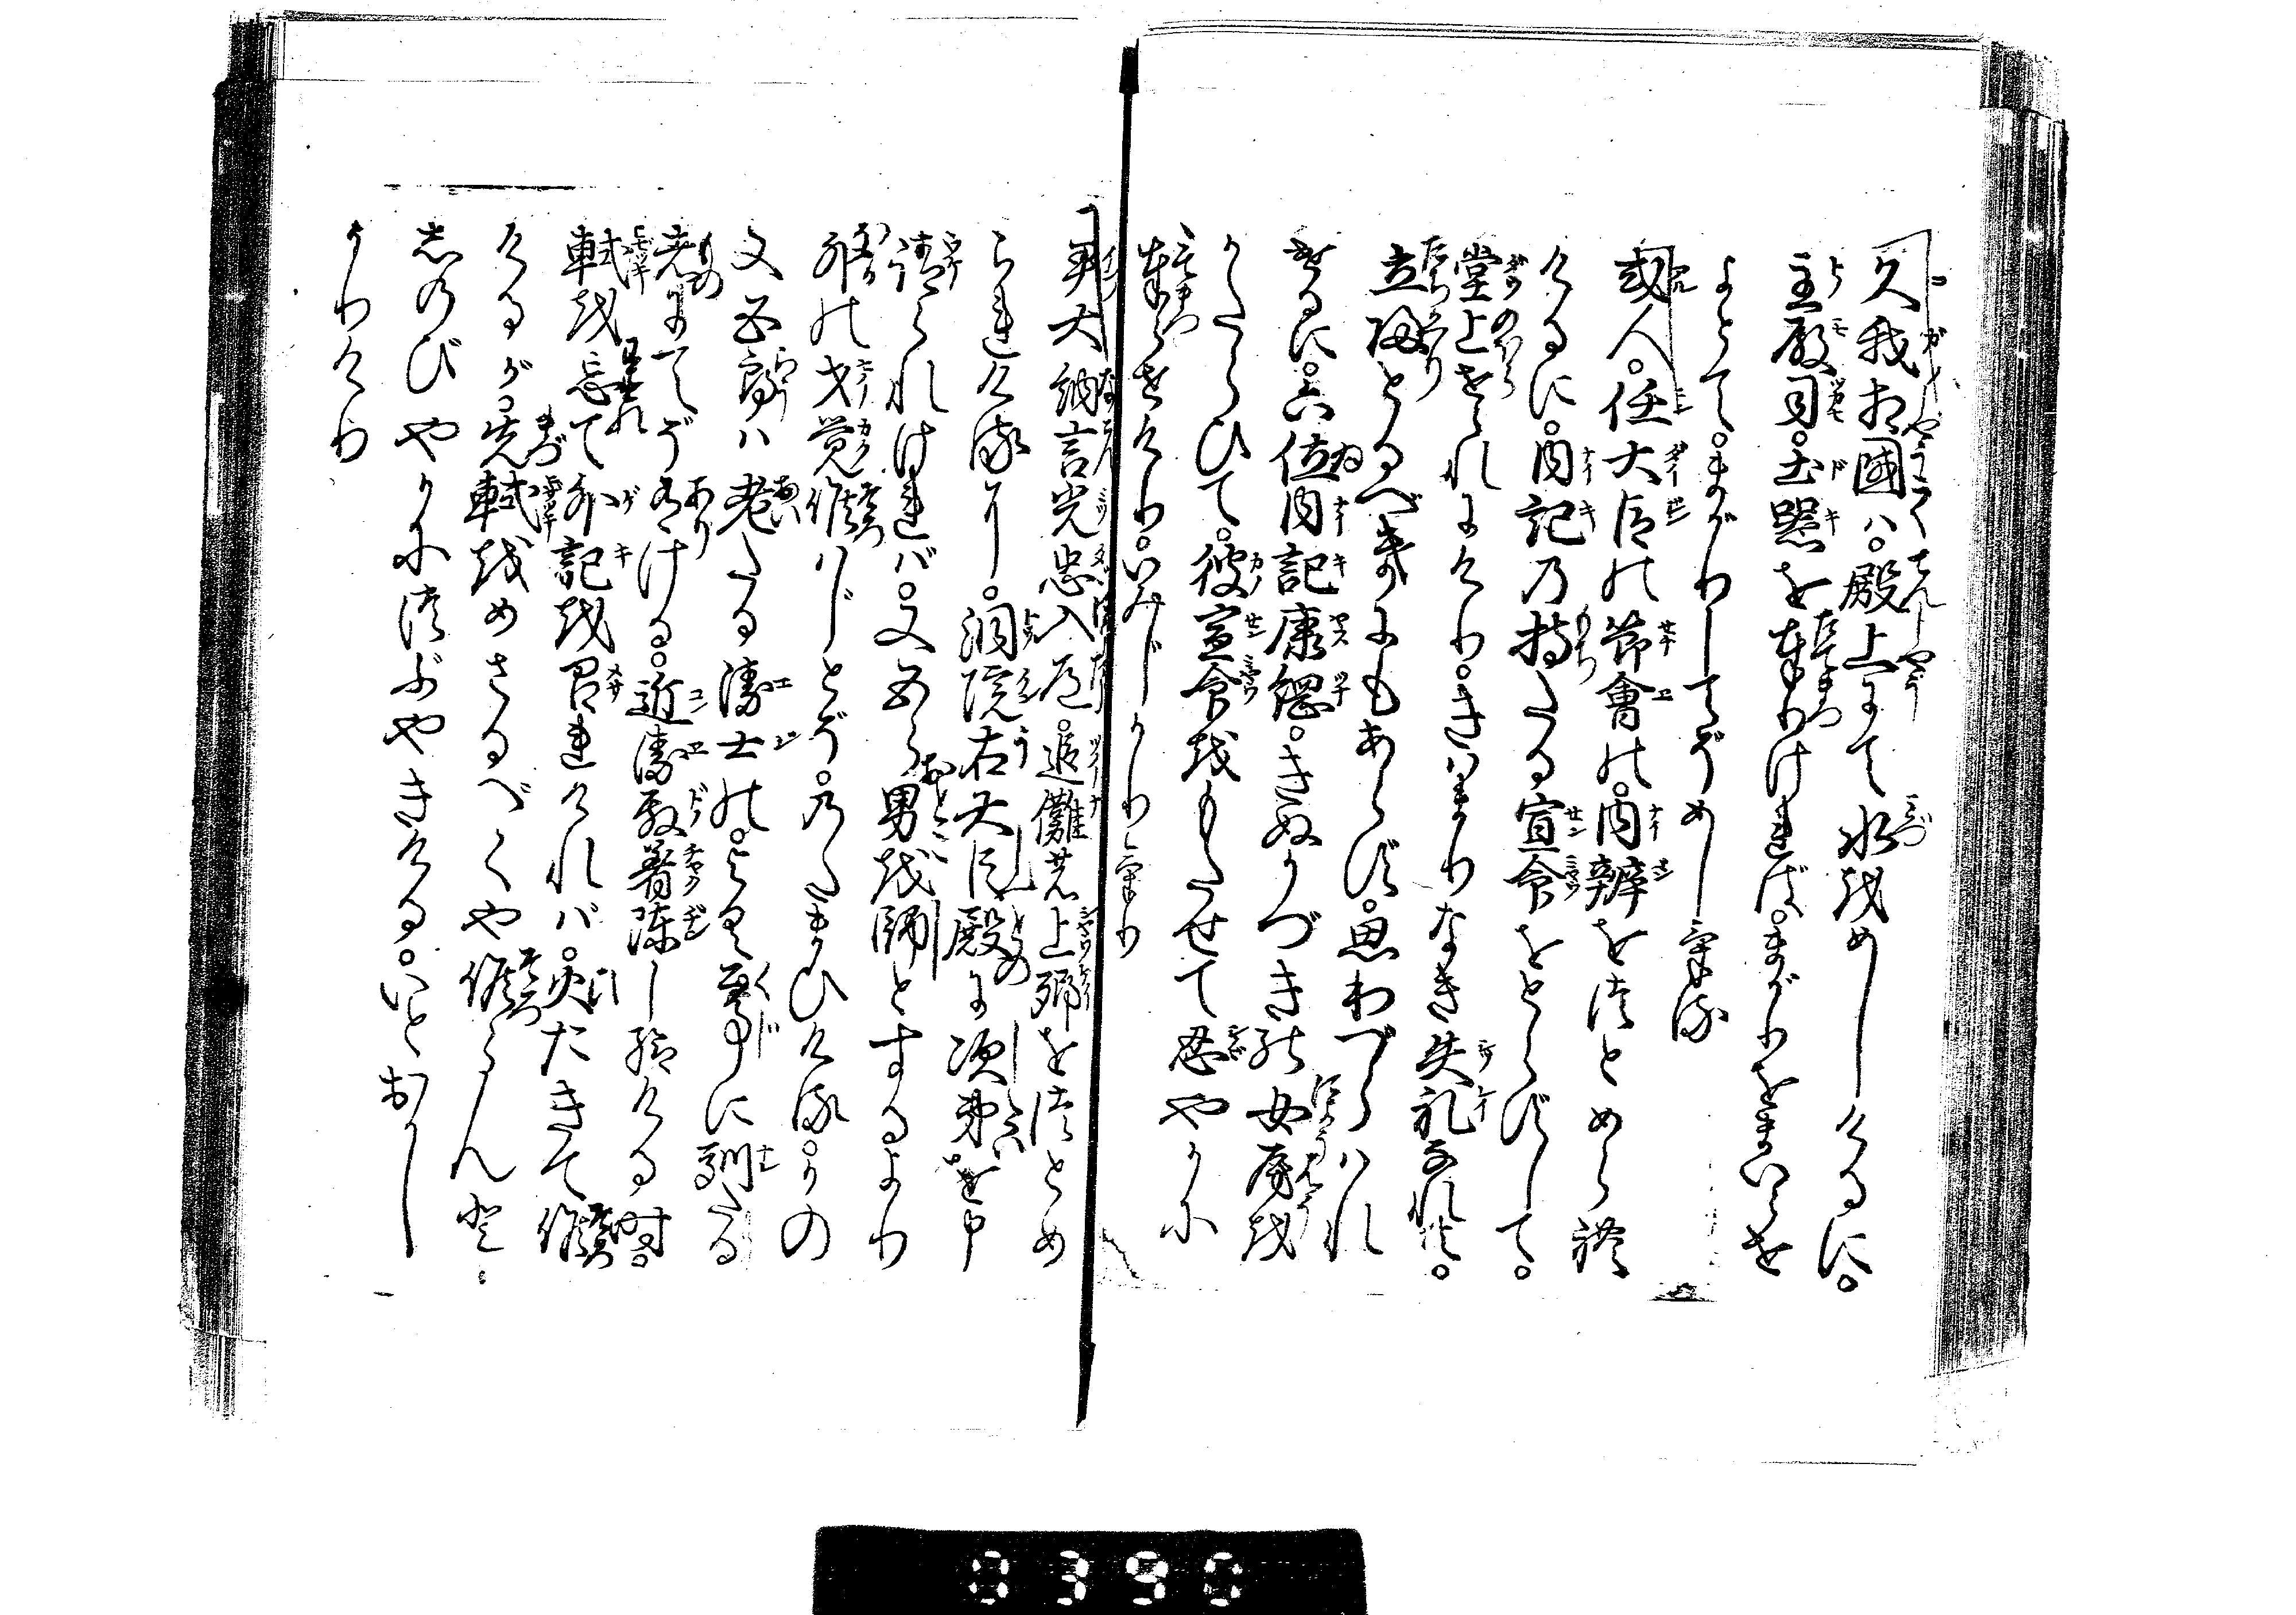 久我相國ハ。殿上にて水をめしけるに。
主殿司。土器を奉りければ。まがりをまいらせ
よとて。まがりしてぞめしける
或人。任大臣の節會の。内辨をつとめられ
けるに。内記の持たる宣命をとらずして。
堂上せられにけり。きはまりなき失礼なれど。
立帰とるべきにもあらず。思わづらはれ
けるに。六位内記康綱。きぬかづきの女房を
かたらひて。彼宣命をもたせて忍やかに
奉らせけり。いみじかりけり
尹大納言光忠入道。追儺の上卿をつとめ
られけるに。洞院右大臣殿に次第を申
請られければ。又五郎男を師とするより
外の才覚候はじとぞ。のたまひける。かの
又五郎ハ老たる衛士の。よく公事に馴たる
者にてぞ有ける。近衛殿着陣し給ける時。
軾を忘て外記を召れければ。火たきて候
けるが。先軾をめさるべくや候らんと
しのびやかにつぶやきける。いとおかし
かりけり
0390